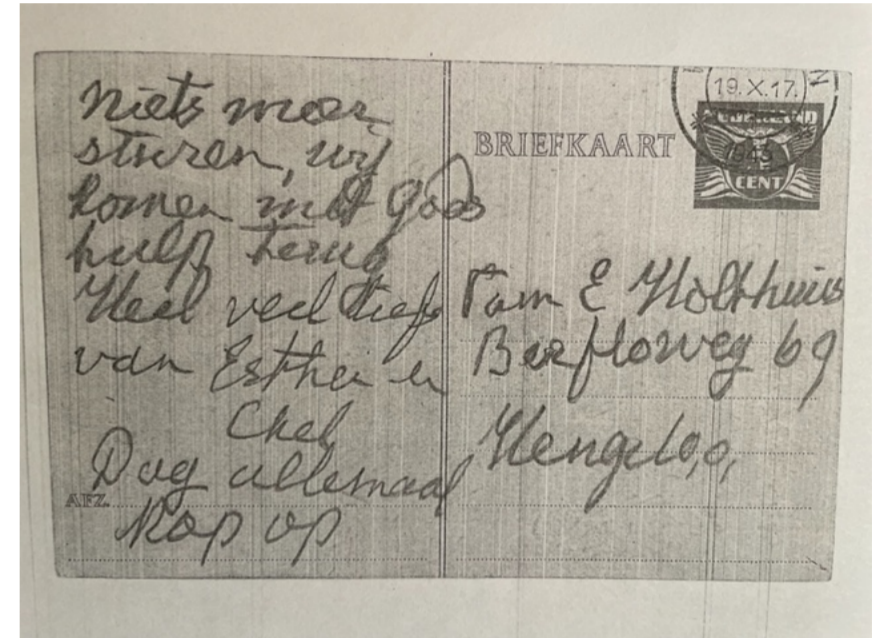 Niets meer
sturen, wij
komen met Gods
hulp terug
Heel veel liefs
van Esther en
Chel
Dag allemaal
Kop op
AFZ.
BRIEFKAART
19.X.17.
N
1943
CENT
Fam E Holthuis
weg 69
Hengelo,o,